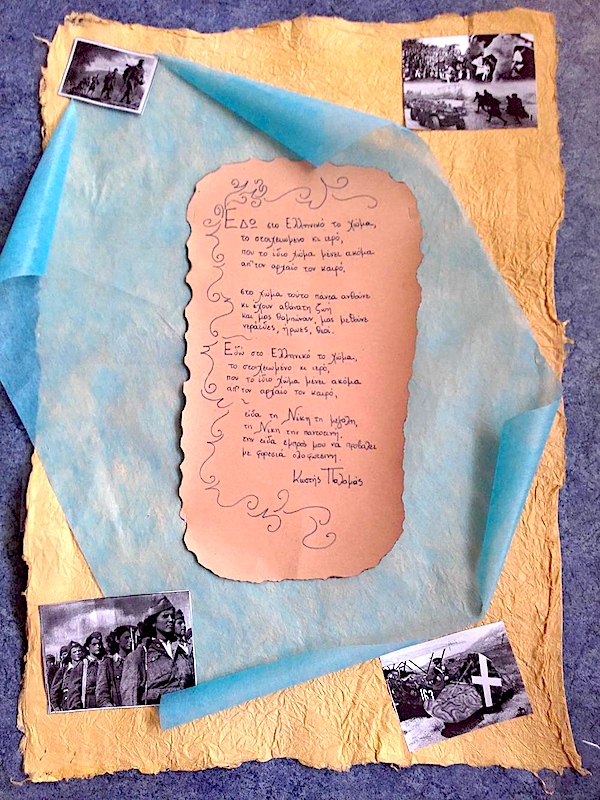 Εδω στο Ελληνικό το χώμα,
το στοιχειωμένο κι ιερό,
που το ίδιο χώμα μένει ακόμα
απ' τον αρχαίο τον καιρό,
στο χώμα τούτο πάντα ανθούνε
κι έχουν αθάνατη ζωή
και μας θαμπώναν, μας μεθούνε
νεράιδες, ήρωες, θεοί.
Εδώ στο Ελληνικό το χώμα,
το στοιχειωμένο κι ιερό,
που το ίδιο χώμα μένει ακόμα
απ' τον αρχαίο τον καιρό,
είδα τη Νίκη τη μεγάλη,
τη Νίκη την παντοτινή,
την είδα εμπρός μου να προβάλει
με φορεσιά ολοφωτεινη.
Κωστής Παλαμάς